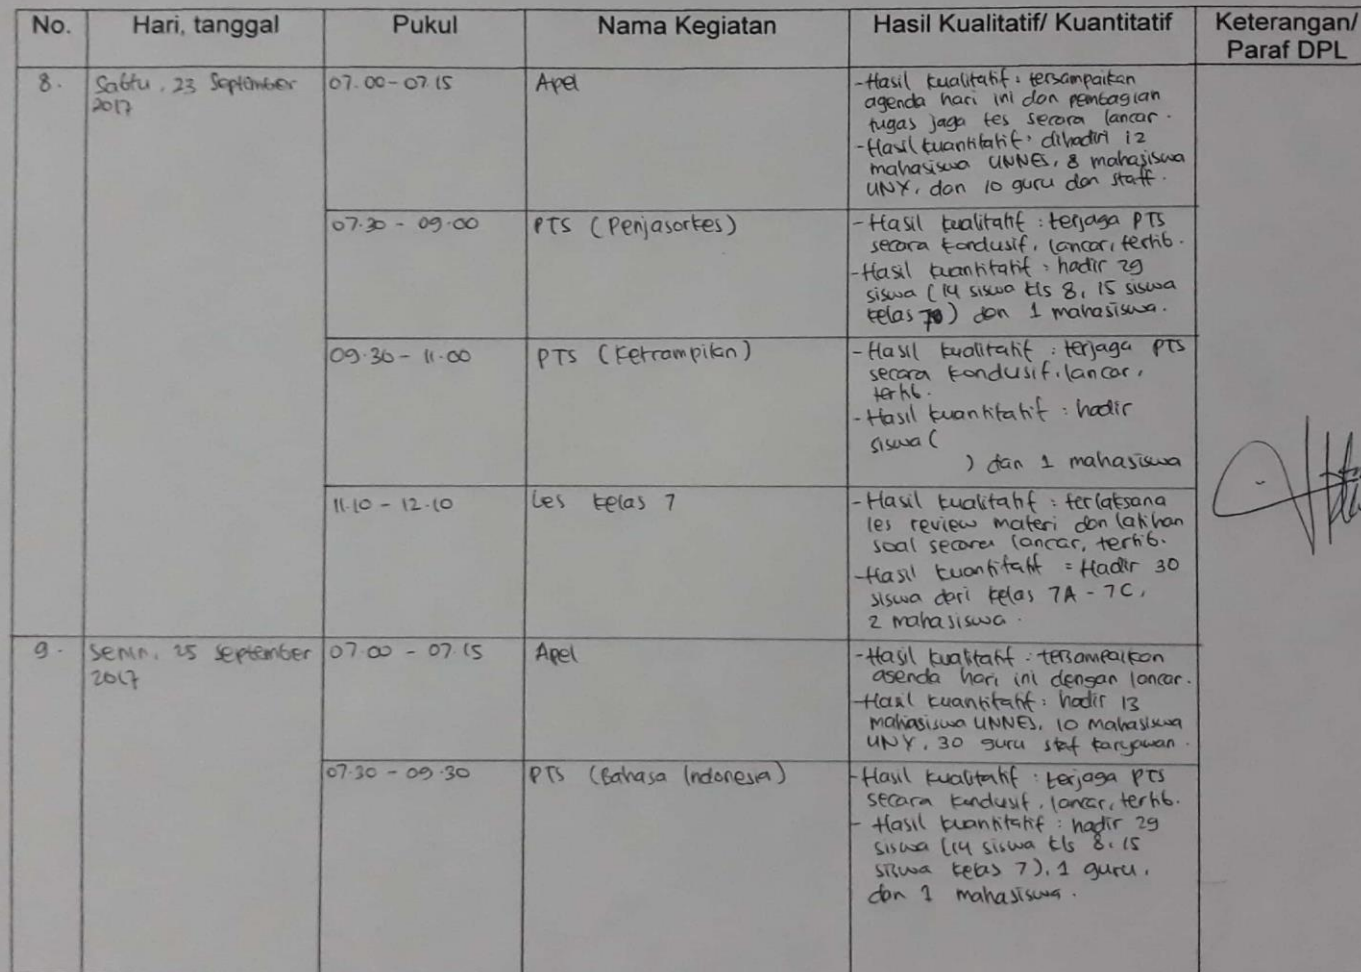 No.
Hari, tanggal
Pukul
Nama Kegiatan
Hasil Kualitatif/ Kuantitatif
Keterangan/
Paraf DPL
8.
Sabtu, 23 September
2017
07.00 - 07.15
Apel
- Hasil kualitatif : tersampaikan
agenda hari ini dan pembagian
tugas jaga tes secara lancar.
- Hasil kuantitatif : dihadiri 12
mahasiswa UNNES, 8 mahasiswa
UNY, dan 10 guru dan staff.
07.30 - 09.00
PTS (Penjasorkes)
- Hasil kualitatif : terjaga PTS
secara kondusif, lancar, tertib.
- Hasil kuantitatif : hadir 29
siswa (14 siswa kls 8, 15 siswa
kelas 7) dan 1 mahasiswa.
09.30 - 11.00
PTS (Ketrampilan)
- Hasil kualitatif : terjaga PTS
secara kondusif, lancar,
tertib.
- Hasil kuantitatif : hadir
siswa (
) dan 1 mahasiswa
11.10 - 12.10
Les kelas 7
- Hasil kualitatif : terlaksana
les review materi dan latihan
soal secara lancar, tertib.
- Hasil kuantitatif = Hadir 30
siswa dari kelas 7A - 7C,
2 mahasiswa.
9.
Senin, 25 September
2017
07.00 - 07.15
Apel
- Hasil kualitatif : tersampaikan
agenda hari ini dengan lancar.
- Hasil kuantitatif : hadir 13
mahasiswa UNNES, 10 mahasiswa
UNY, 30 guru staf karyawan.
07.30 - 09.30
PTS (Bahasa Indonesia)
- Hasil kualitatif : terjaga PTS
secara kondusif, lancar, tertib.
- Hasil kuantitatif : hadir 29
siswa (14 siswa kls 8, 15
siswa kelas 7), 1 guru,
dan 1 mahasiswa.